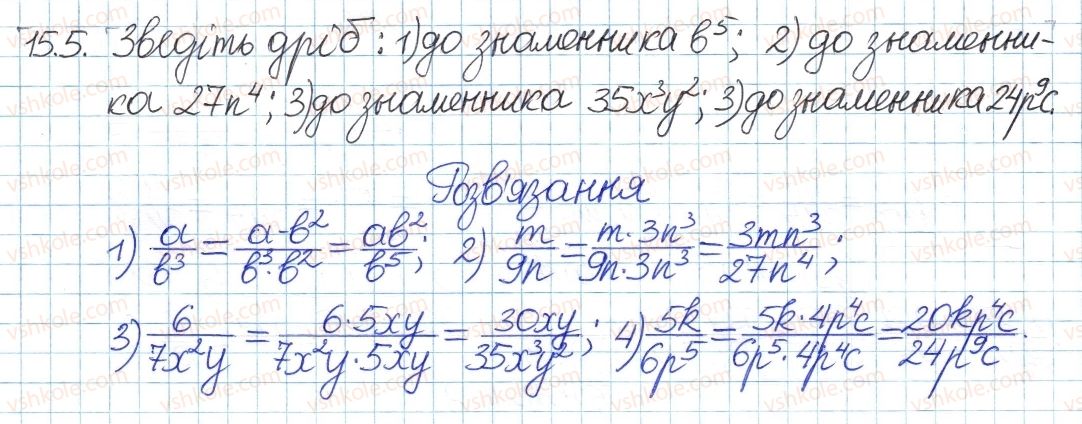 15.5. Зведіть дріб: 1) до знаменника b⁵; 2) до знаменни-
ка 27n⁴; 3) до знаменника 35x³y²; 3) до знаменника 24p⁹c.
Розв'язання
1) a/b³ = a·b²/b³·b² = ab²/b⁵; 2) m/9n = m·3n³/9n·3n³ = 3mn³/27n⁴;
3) 6/7x²y = 6·5xy/7x²y·5xy = 30xy/35x³y²; 4) 5k/6p⁵ = 5k·4p⁴c/6p⁵·4p⁴c = 20kp⁴c/24p⁹c.
vshkole.com